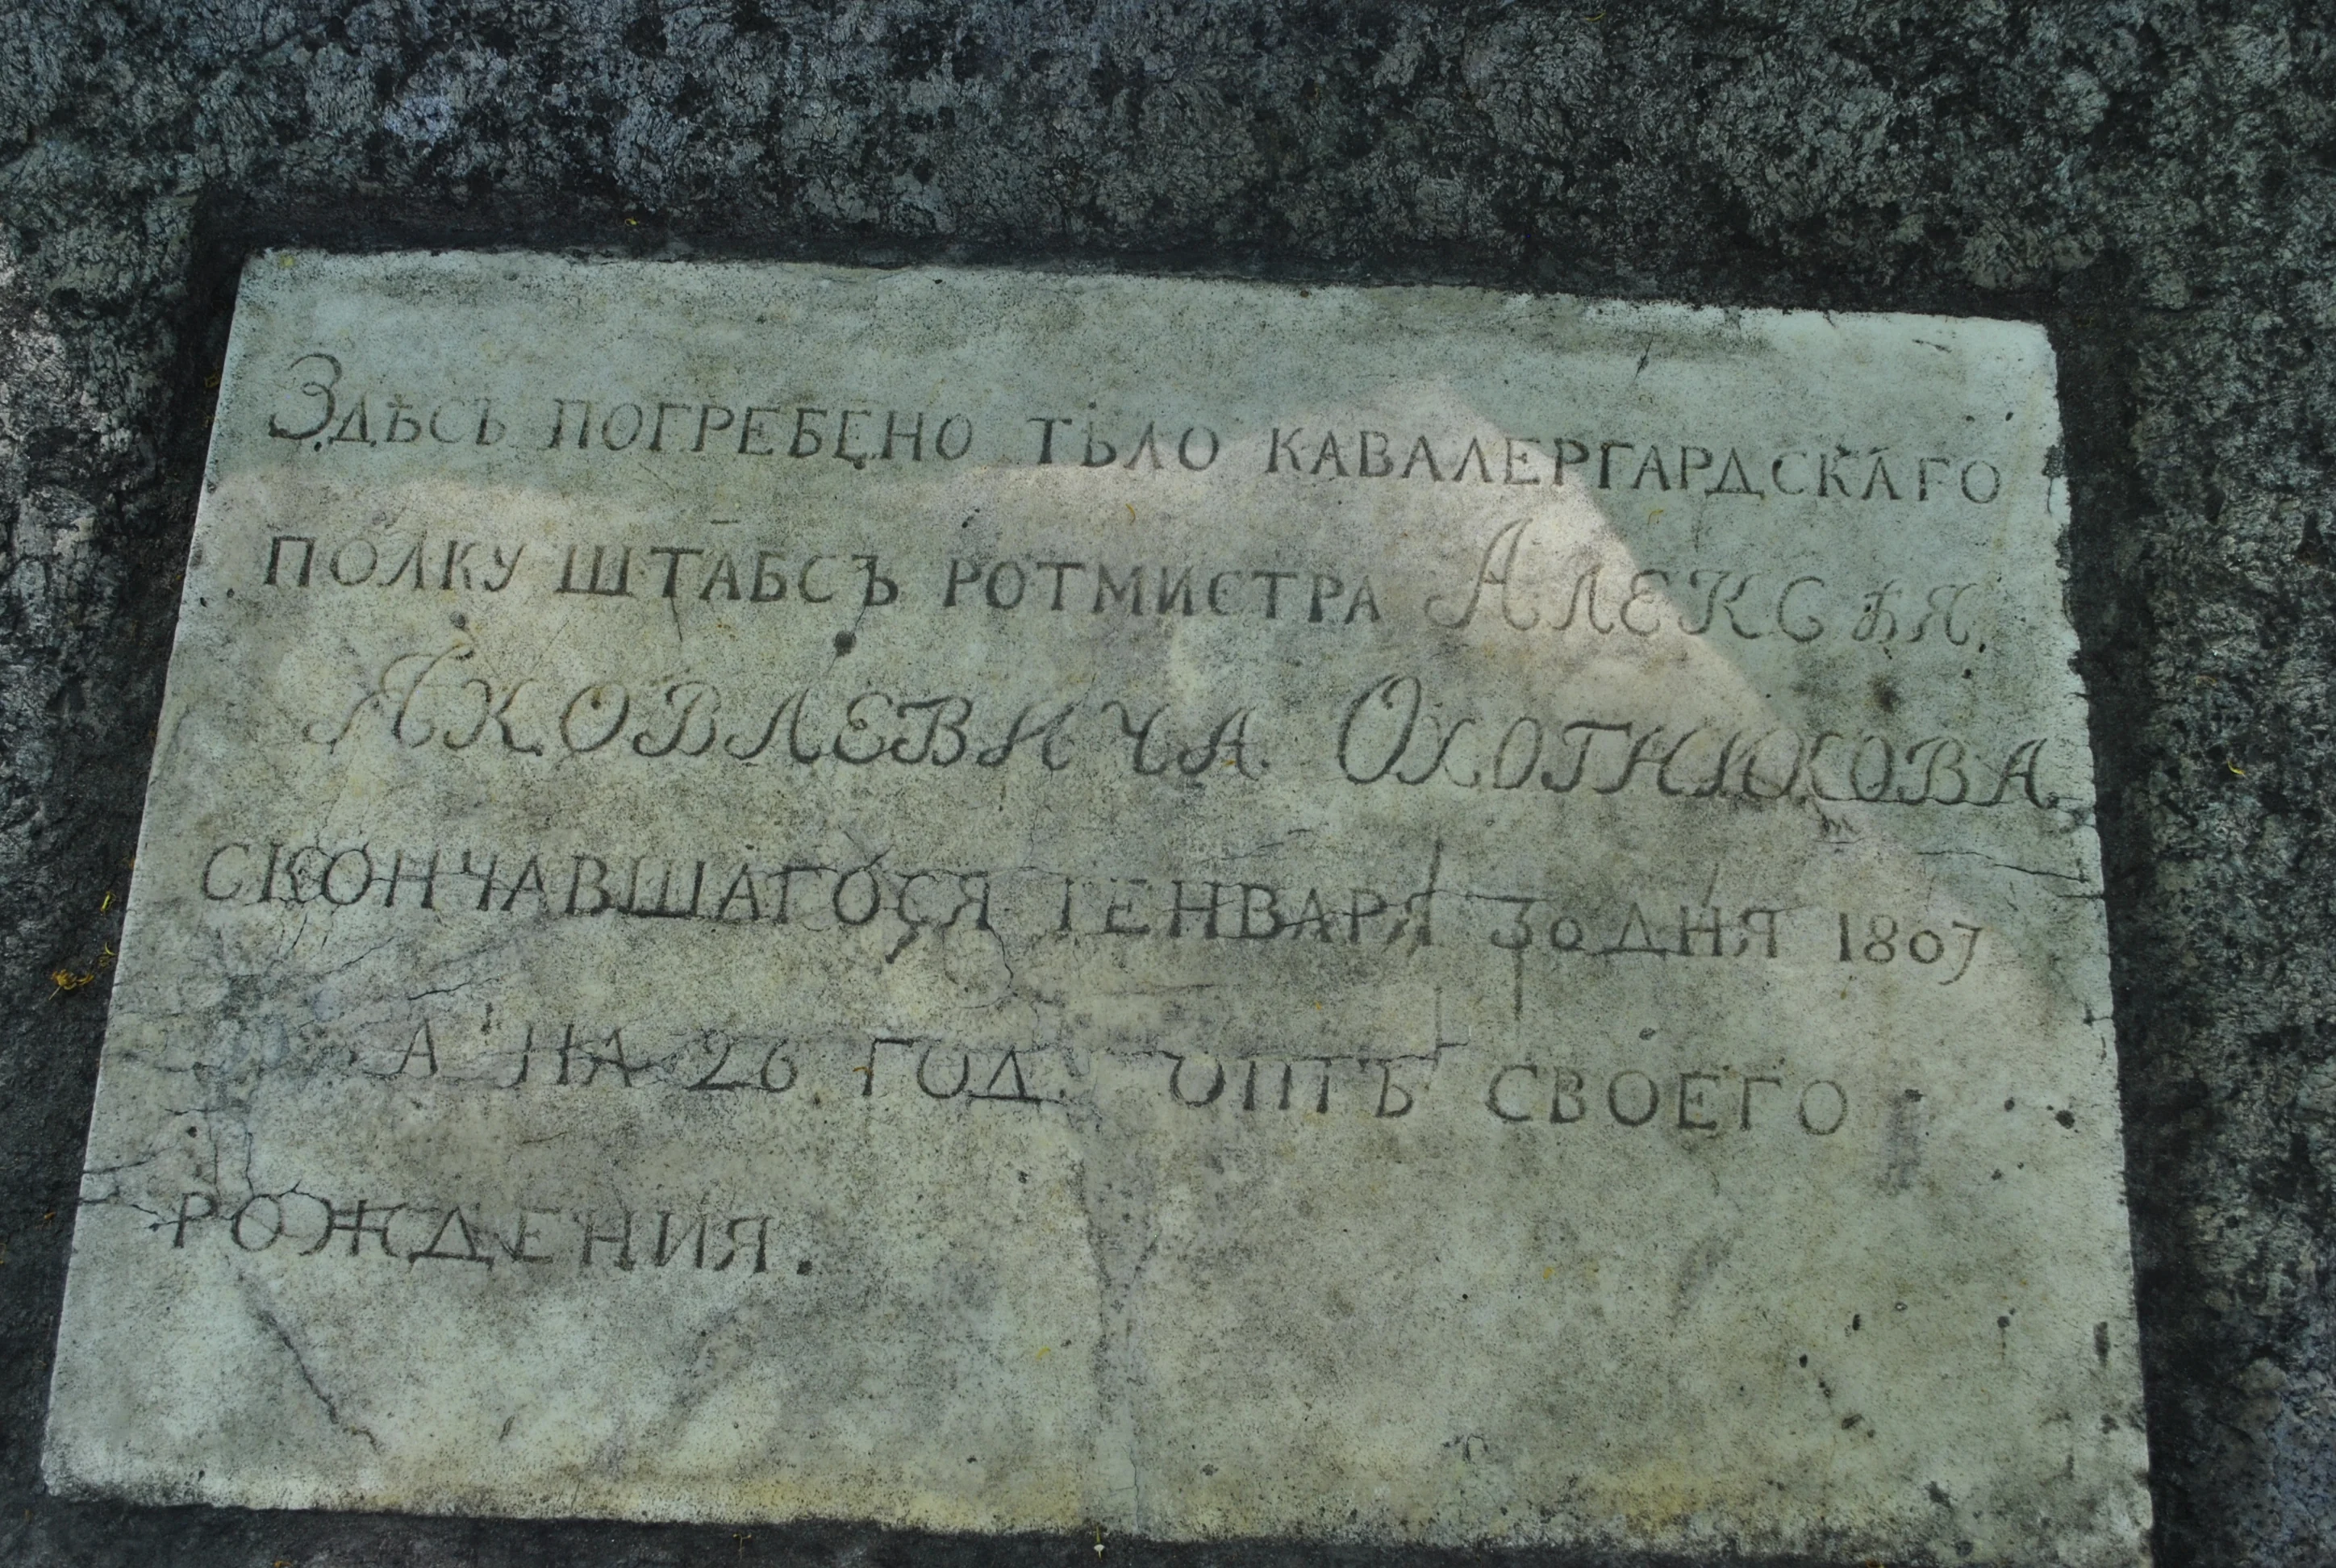 Здѣсь погребено тѣло кавалергардскаго
полку штабсъ ротмистра Алексѣя
Яковлевича Охотникова
скончавшагося Генваря 30 дня 1807
а на 26 год. отъ своего
рождения.